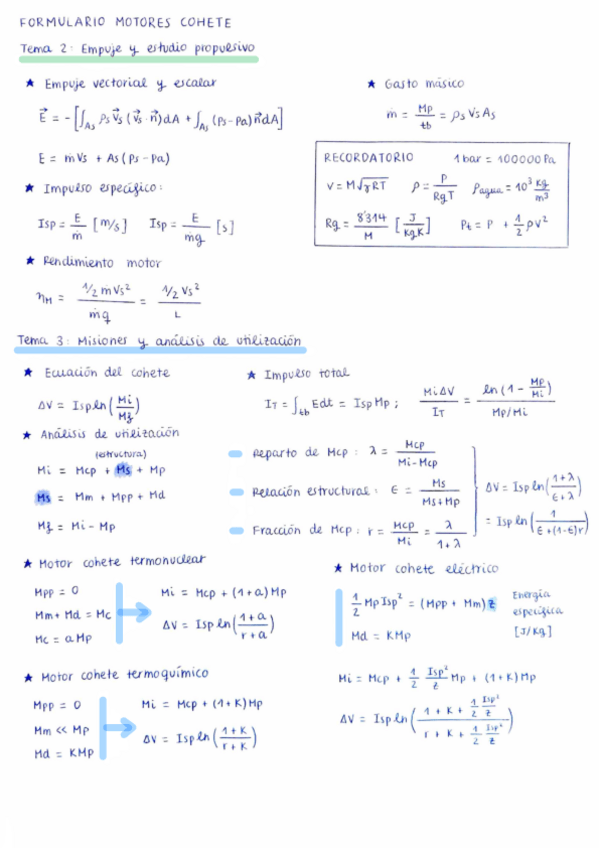 FORMULARIO MOTORES COHETE
Tema 2: Empuje y estudio propulsivo
★ Empuje vectorial y escalar
E⃗ = -[∫As ρs V⃗s (V⃗s · n⃗)dA + ∫As (Ps - Pa) n⃗ dA]
E = ṁVs + As(Ps - Pa)
★ Gasto másico
ṁ = Mp/tb = ρs Vs As
RECORDATORIO 1 bar = 100000 Pa
v = M√(γRT) ρ = P/(RgT) ρagua = 10³ kg/m³
Rg = 8'314/M [J/kgK] Pt = P + 1/2 ρv²
★ Impulso específico:
Isp = E/ṁ [m/s] Isp = E/(ṁg) [s]
★ Rendimiento motor
ηM = (1/2 ṁVs²)/(ṁq) = (1/2 Vs²)/L
Tema 3: Misiones y análisis de utilización
★ Ecuación del cohete
ΔV = Isp ln(Mi/Mf)
★ Impulso total
IT = ∫tb Edt = Isp Mp ; MiΔV/IT = ln(1 - Mp/Mi)/(Mp/Mi)
★ Análisis de utilización
(estructura)
Mi = Mcp + Ms + Mp
Ms = Mm + Mpp + Md
Mf = Mi - Mp
Reparto de Mcp: λ = Mcp/(Mi-Mcp)
Relación estructural: ϵ = Ms/(Ms+Mp)
Fracción de Mcp: r = Mcp/Mi = λ/(1+λ)
ΔV = Isp ln((1+λ)/(ϵ+λ))
= Isp ln(1/(ϵ+(1-ϵ)r))
★ Motor cohete termonuclear
Mpp = 0
Mm + Md = Mc
Mc = aMp
Mi = Mcp + (1+a)Mp
ΔV = Isp ln((1+a)/(r+a))
★ Motor cohete eléctrico
1/2 Mp Isp² = (Mpp + Mm)z
Md = KMp
Energía
específica
[J/kg]
Mi = Mcp + 1/2 Isp²/z Mp + (1+K)Mp
ΔV = Isp ln((1 + K + 1/2 Isp²/z)/(r + K + 1/2 Isp²/z))
★ Motor cohete termoquímico
Mpp = 0
Mm << Mp
Md = KMp
Mi = Mcp + (1+K)Mp
ΔV = Isp ln((1+K)/(r+K))